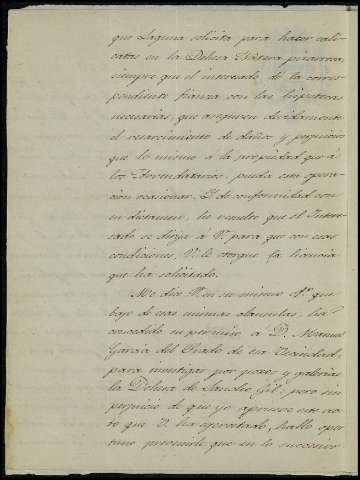 que Laguna solicita para hacer cali-
catas en la Dehesa
siempre que el interesado dé la corres-
pondiente fianza con las hipotecas
necesarias, que aseguren debidamente
el resarcimiento de daños y perjuicios
que lo mismo a la propiedad que á
los Arrendatarios, pueda esta opera-
cion ocasionar. Y de conformidad con
su dictamen, he resuelto que el Intere-
sado se dirija á V. para que con esas
condiciones, V. le otorgue la licencia
que ha solicitado.
Me dice V. en su mismo of.º que
bajo de esas mismas clausulas, ha
concedido su permiso á D. Manuel
Garcia del Prado de esa Vecindad,
para investigar por pozos y galerias
la Dehesa de Sancho Gil; pero sin
perjuicio de que yo apruebe este ac-
to que V. ha ejecutado, hallo opor-
tuno prevenirle que en lo succesivo